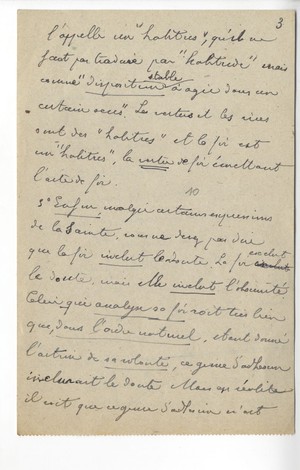 3
l'appelle un "habitus", qu'il ne
faut pas traduire par "habitude" mais
comme "disposition stable à agir dans un
certain sens". Les vertus et les vices
sont des "habitus" et la foi est
un "habitus", la vertu de foi émettant
l'acte de foi.
10
3° Enfin malgré certaines expressions
de la Sainte, comme pas dire
que la foi inclut le doute. La foi exclut
le doute, mais elle inclut l'obscurité
Celui qui analyse sa foi voit très bien
que, dans l'ordre naturel, étant donné
l'action de sa volonté, ce genre d'adhésion
incluerait le doute. Mais en réalité
il voit que ce genre d'adhésion n'est